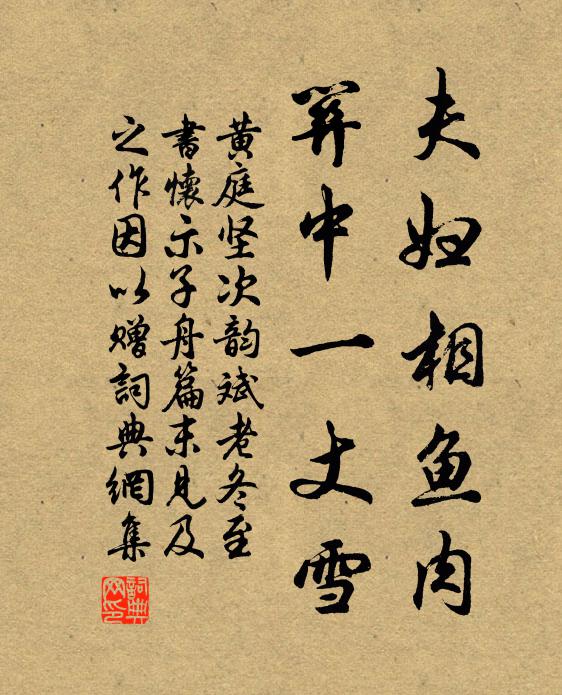 夫妇相鱼肉
关中一丈雪
黄庭坚次韵斌老冬至
書懷示子舟篇末见及
之作因以赠詞典網集
詞典网印